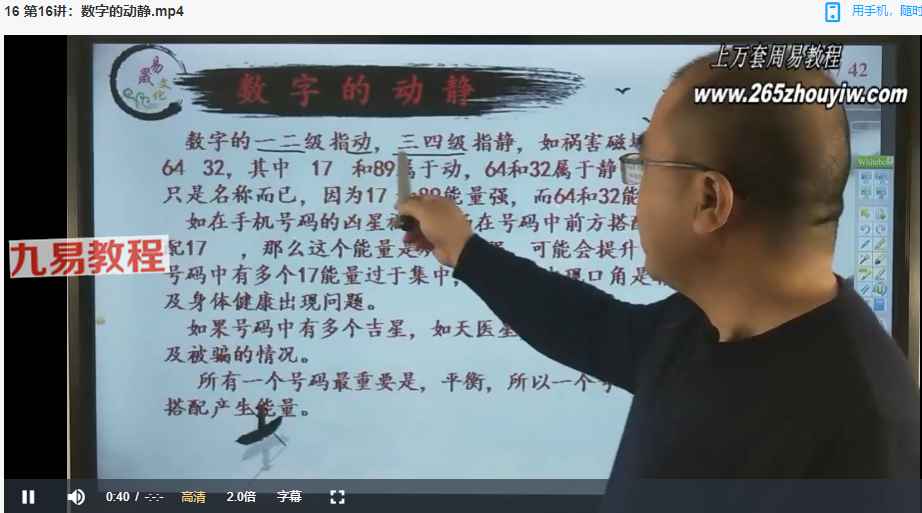 16 第16讲：数字的动静.mp4
用手机，随时
易晟
文化
数字的动静
上万套周易教程
www.265zhouyiw.com
42
数字的一二级指动，三四级指静，如祸害磁
64 32，其中 17 和89属于动，64和32属于静
只是名称而已，因为17 能量强，而64和32能
如在手机号码的凶星 在号码中前方搭
配17 ，那么这个能量是 可能会提升
号码中有多个17能量过于集中， 现口角是
及身体健康出现问题。
如果号码中有多个吉星，如天医星
及被骗的情况。
所有一个号码最重要是，平衡，所以一个
搭配产生能量。
九易教程
0:40 / -:-:-
高清
2.0倍
字幕